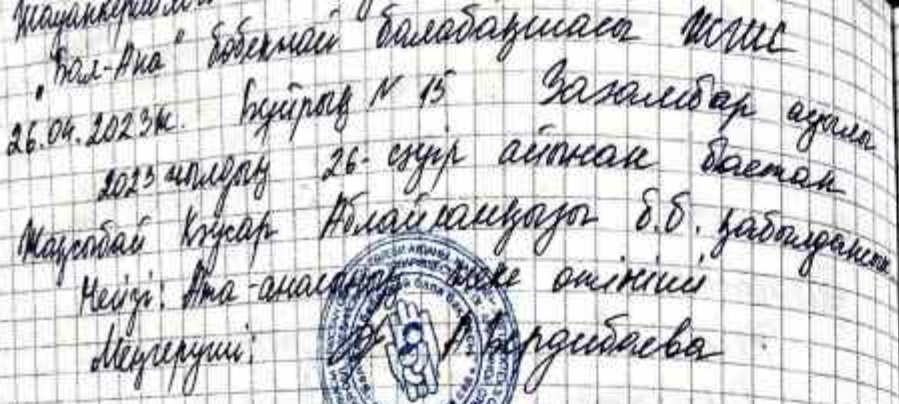 "Бал-Ана" бөбекжай балабақшасы ЖШС
26.04.2023ж. Бұйрық N 15 Зағамбар ауылы
2023 жылдың 26-сәуір айынан бастап
Жақсыбай Кәусар Абдайханқызы б.б. қабылдансын
Негізі: Ата-анасының жеке өтініші
Меңгеруші: А.Бердибаева